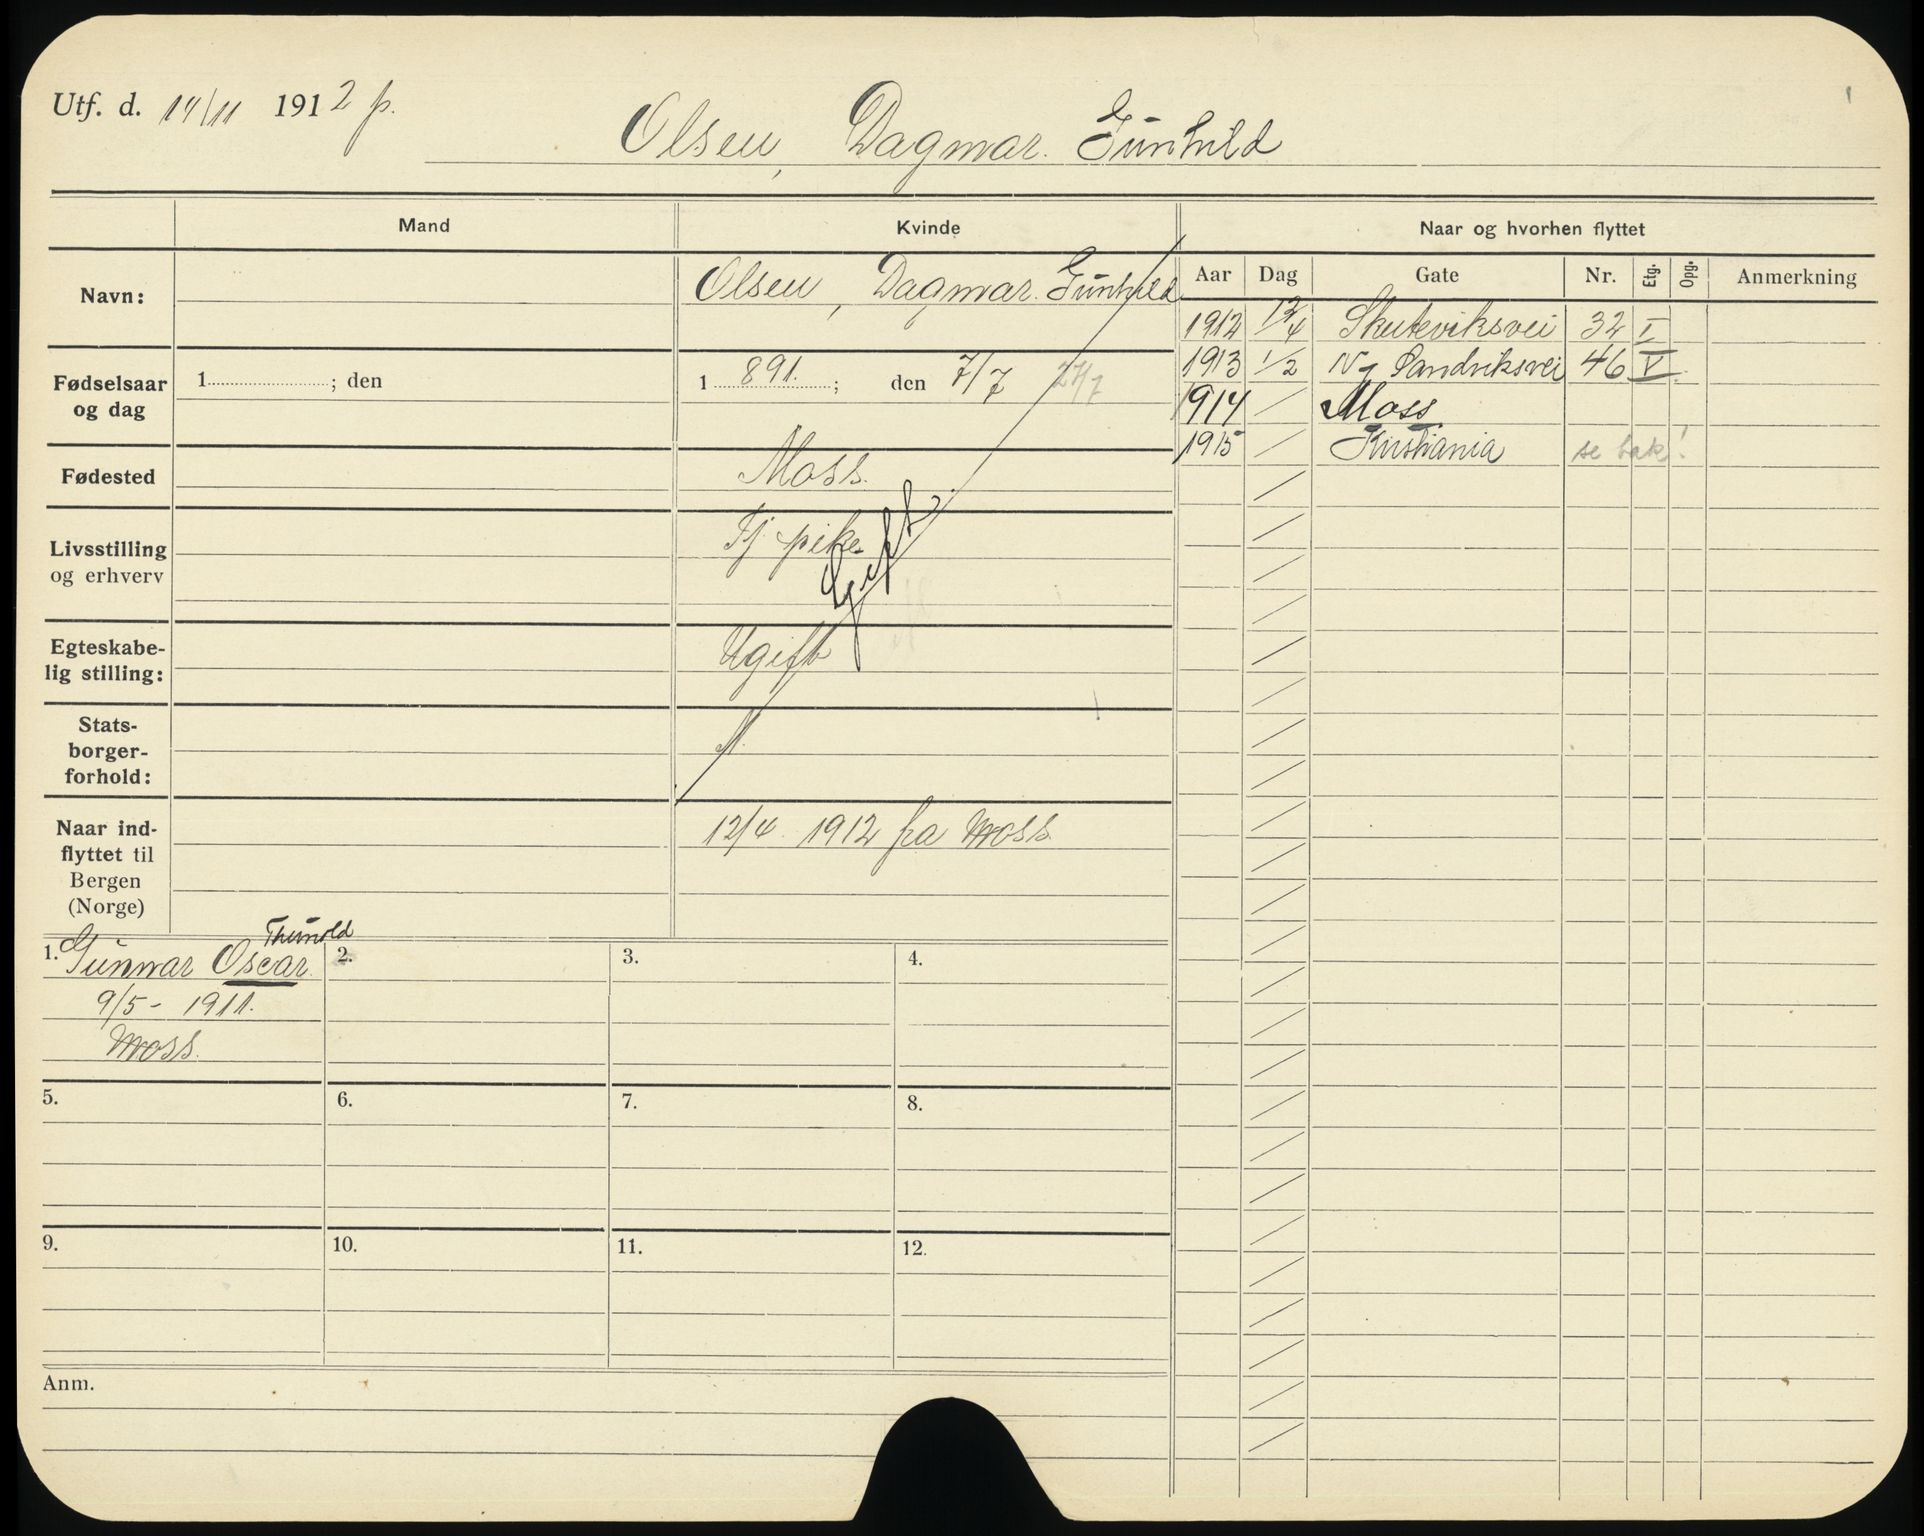 Utf. d. 14/11 1912 p.
Olsen, Dagmar. Gunhild
Mand
Kvinde
Naar og hvorhen flyttet
Navn:
Olsen, Dagmar. Gunhild
Aar Dag Gate Nr. Etg. Opg. Anmerkning
1912 12/4 Skuteviksvei 32 I
1913 1/2 Ny Sandviksvei 46 V
1914 Moss
1915 Kristiania se bak!
Fødselsaar og dag
1 ; den
1 891. ; den 7/7 27/7
Fødested
Moss.
Livsstilling og erhverv
Tj. pike
Gift
Egteskabe-
lig stilling:
Ugift
Stats-
borger-
forhold:
N.
Naar ind-
flyttet til
Bergen
(Norge)
12/4 1912 fra Moss
1. Gunnar Oscar.
9/5 - 1911.
Moss.
2.
3.
4.
5.
6.
7.
8.
9.
10.
11.
12.
Anm.